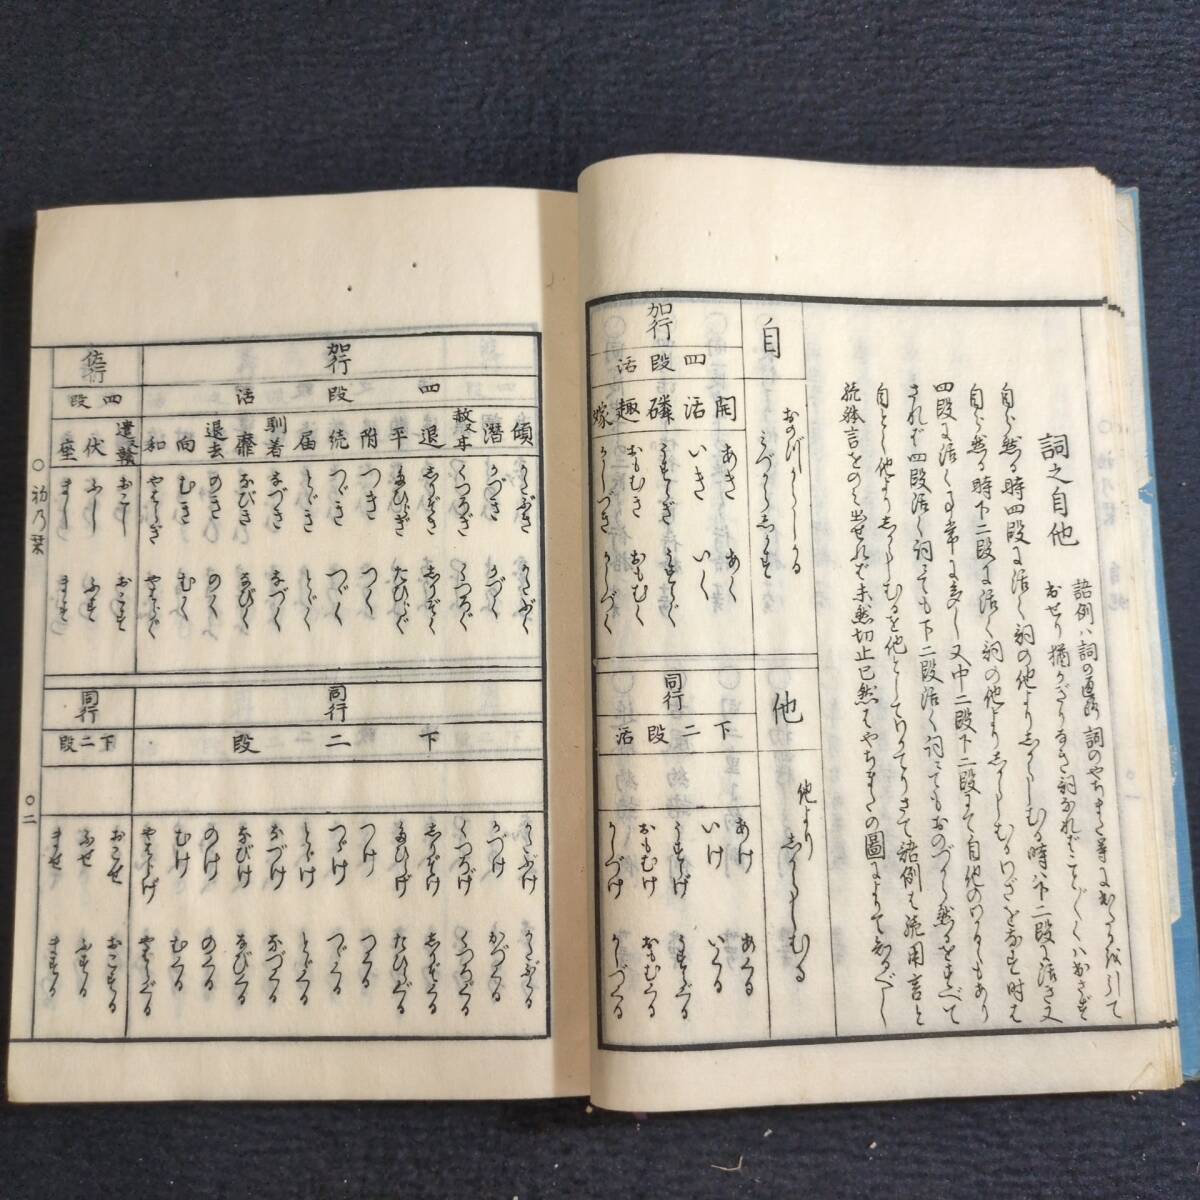 詞之自他
語例ハ詞の直路詞のやちまた等に出たるを引て
おせり猶かぎりなき詞なればことごとくハおさず
自ら然る時四段に活く詞の他よりしからしむる時ハ下二段に活き又
自ら然る時下二段に活く詞の他よりしからしむるわざをなす時は
四段に活く事常に多し又中二段下二段にて自他のわかるもあり
されば四段活く詞にても下二段活く詞にてもおのづから然るをすべて
自とし他よりしからしむるを他としてわかてりさて語例は続用言と
続体言をのみ出せれど未然切止已然はやちまたの圖によりて知べし
自
おのづからしかる
みづからしかす
他
他より
しからしむる
加行
四段活
開 あき あく
活 いき いく
磷 うすらぎ うすらぐ
趣 おもむき おもむく
嫁 かしづき かしづく
同行
下二段活
あけ あくる
いけ いくる
うすらげ うすらぐる
おもむけ おもむくる
かしづけ かしづくる
加行
四段活
傾 かたぶき かたぶく
潜 かづき かづく
くつろぎ くつろぐ
退 しりぞき しりぞく
平 たひらぎ たひらぐ
附 つき つく
続 つゞき つゞく
届 とゞき とゞく
馴着 なづき なづく
靡 なびき なびく
退去 のき のく
向 むき むく
和 やはらぎ やはらぐ
佐行
四段
おこし おこす
伏 ふし ふす
座 まし ます
同行
下二段
かたぶけ かたぶくる
かづけ かづくる
くつろげ くつろぐる
しりぞけ しりぞくる
たひらげ たひらぐる
つけ つくる
つゞけ つゞくる
とゞけ とゞくる
なづけ なづくる
なびけ なびくる
のけ のくる
むけ むくる
やはらげ やはらぐる
同行
下二段
おこせ おこする
ふせ ふする
ませ まする
○詞乃栞
○二